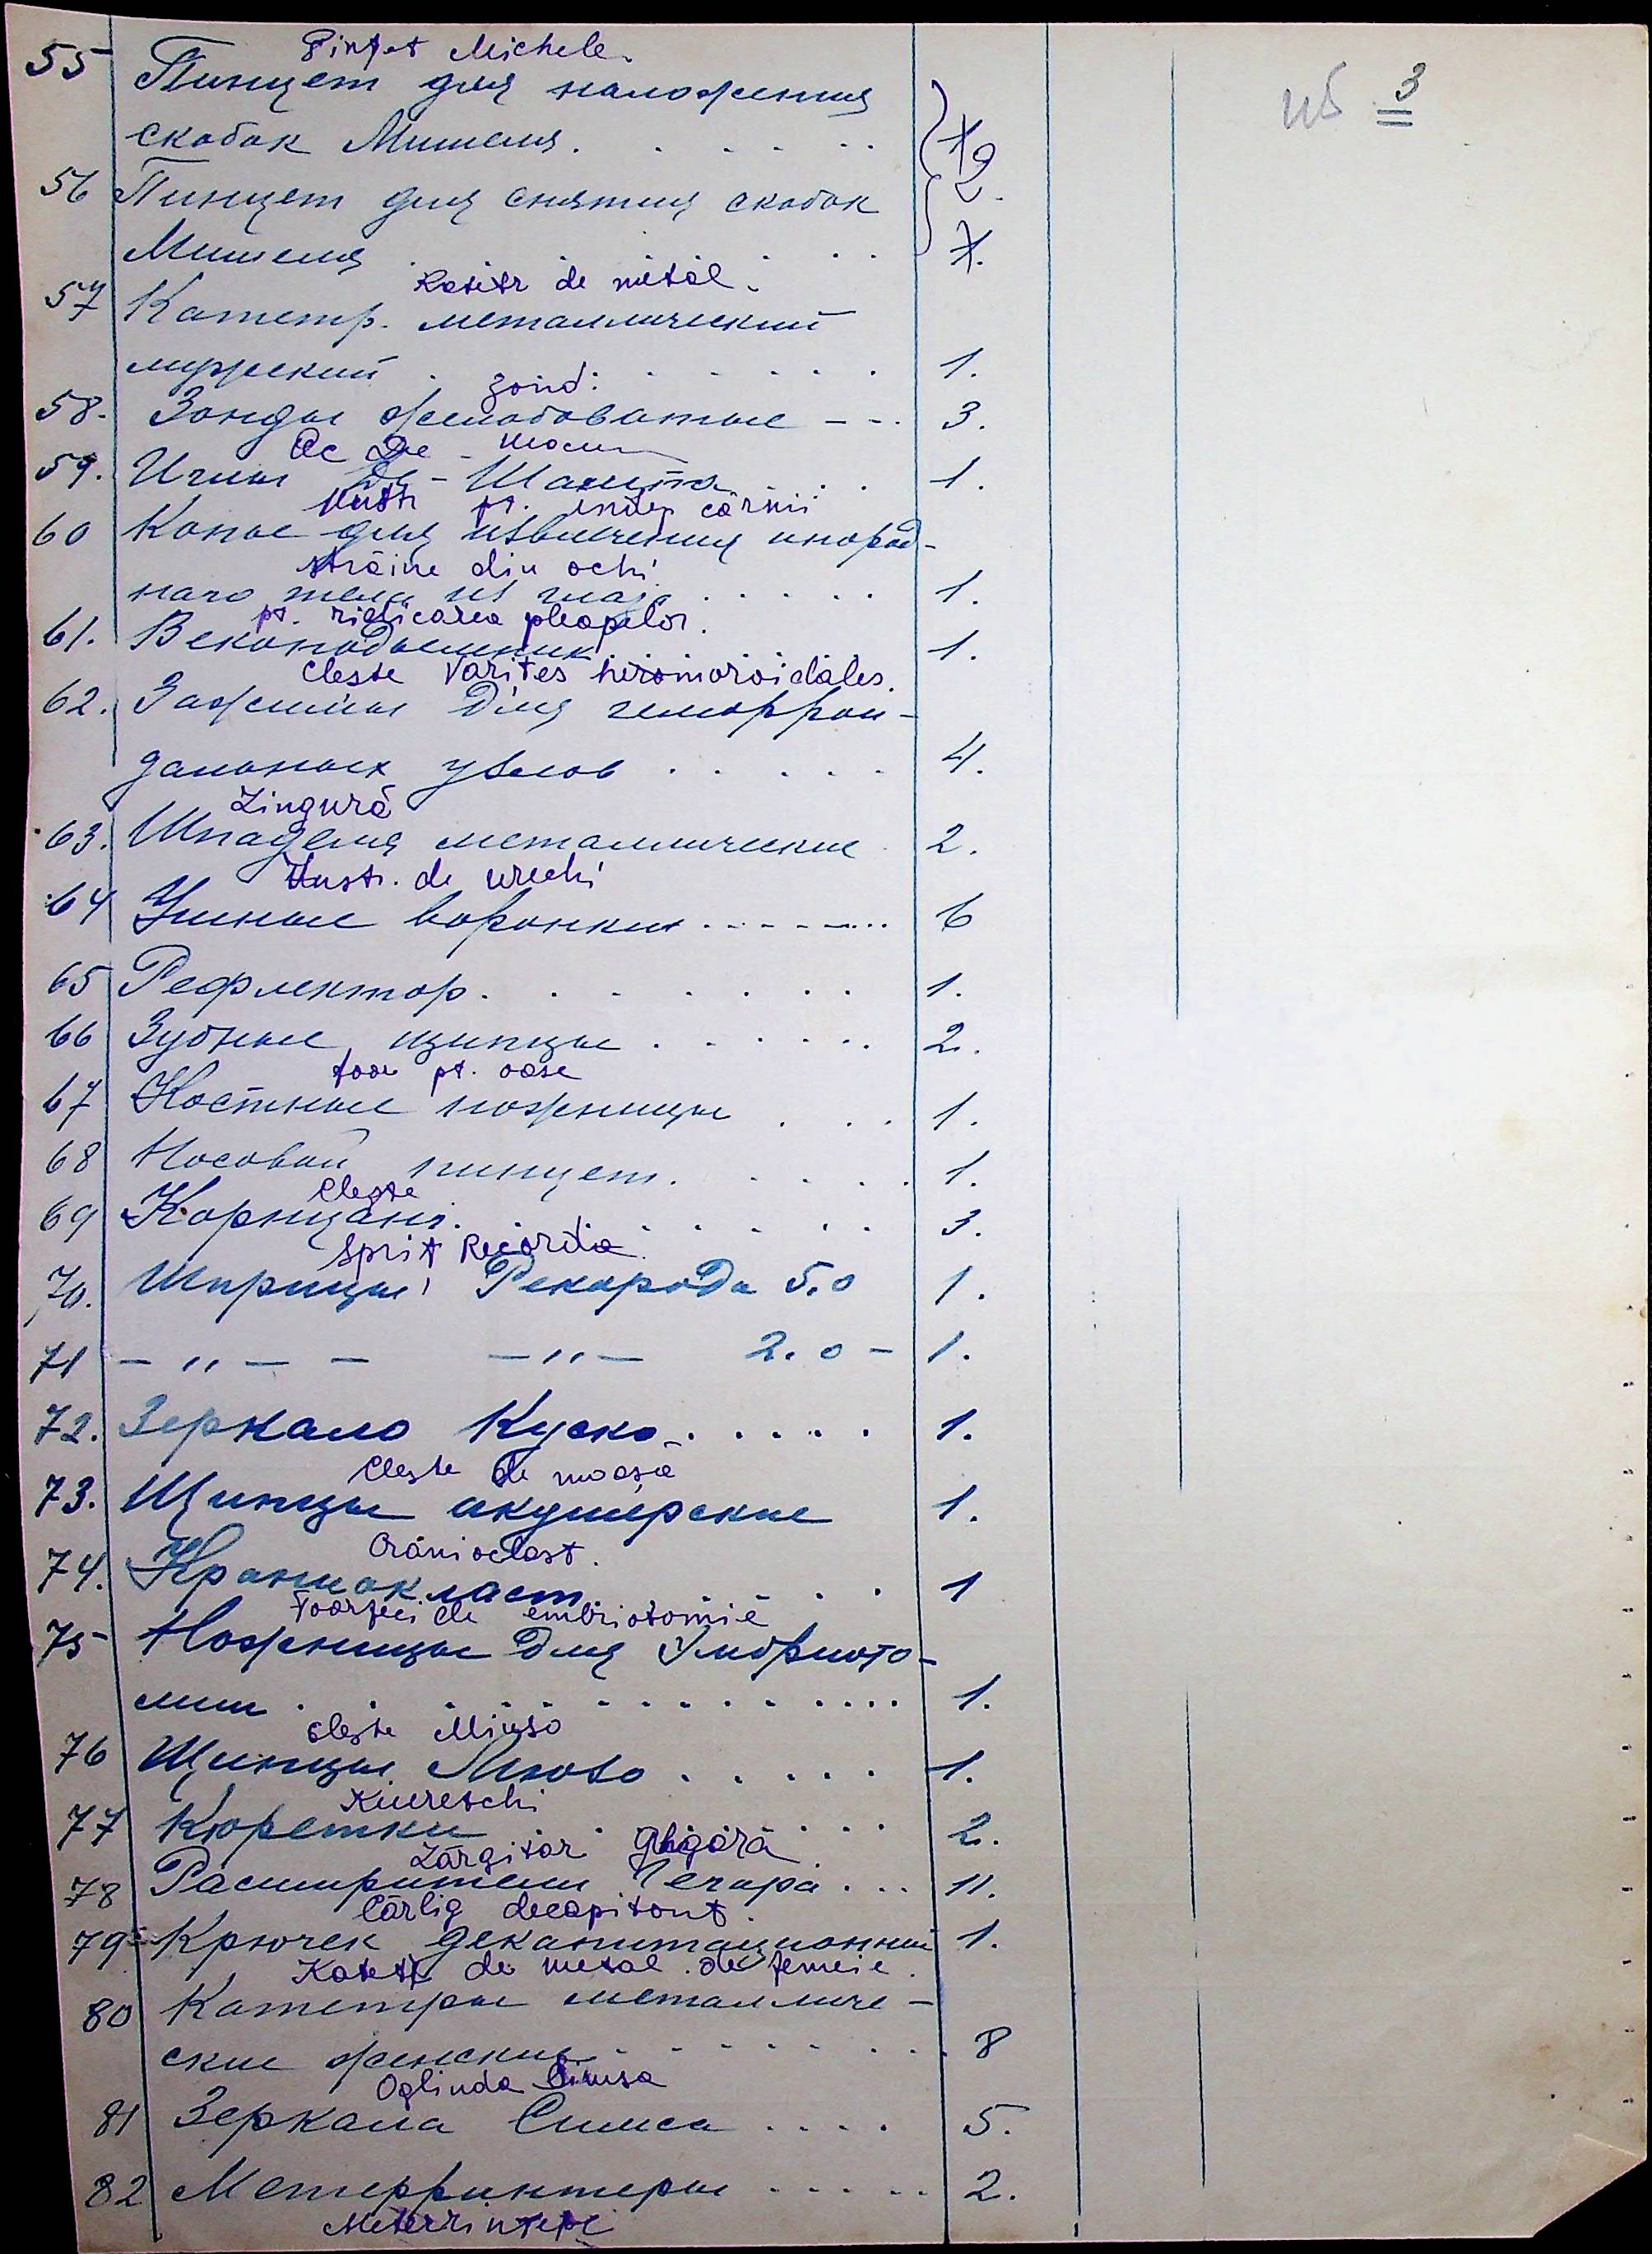 Pinset Michele.
55 Пинцет для наложения
скобок Мишеля . . . . . . 2.
из 3
56 Пинцет для снятия скобок
Мишеля . . . . . . 1.
Katetr de metal.
57 Катетр. металлический
мужской . . . . . . 1.
Zond.
58. Зонды желобоватые - - . 3.
Ac De -
59. Иглы Де-Шампа . . . 1.
Instr pt. cărnii
60 Копье для извлечения инород-
străine din ochi
ного тела из глаза . . . . . 1.
pt. ridicarea pleapelor.
61. Векоподъемник . . . . . 1.
Cleste Varites hemoroidales.
62. Зажимы для геморрои-
дальных узлов . . . . . 4.
Lingură
63. Шпаделя металлические 2.
Instr. de urechi
64 Ушные воронки . . . . . . . . 6
65 Рефлектор . . . . . . . 1.
66 Зубные щипцы . . . . . . 2.
foar pt. oase
67 Костные ножницы . . . 1.
68 Носовой пинцет . . . . . 1.
Cleste
69 Корнцанг . . . . . . . 3.
Sprit Recorda
70. Шприцы Рекорда 5.0 1.
71 - " - - - " - 2.0 - 1.
72. Зеркало Куско . . . . . 1.
Cleste de moașe
73. Щипцы акушерские 1.
Cranioclast.
74. Краниокласт . . . . . 1
Foarfeci de embriotomie
75 Ножницы для Эмбриото-
мии . . . . . . . . . . . 1.
Cleste Miuso
76 Щипцы Мюзо . . . . . 1.
Kiuretchi
77 Кюретки . . . . . . 2.
Lărgitor Ghigara
78 Расширители Гегара . . . 11.
Cârlig decapitont.
79 Крючек декапитационный 1.
Katetr de metal de femeie.
80 Катетры металличе-
ские женские . . . . . . 8
Oglinda Simsa
81 Зеркала Симса . . . . 5.
82 Метерринтеры . . . . . 2.
Meterrintere